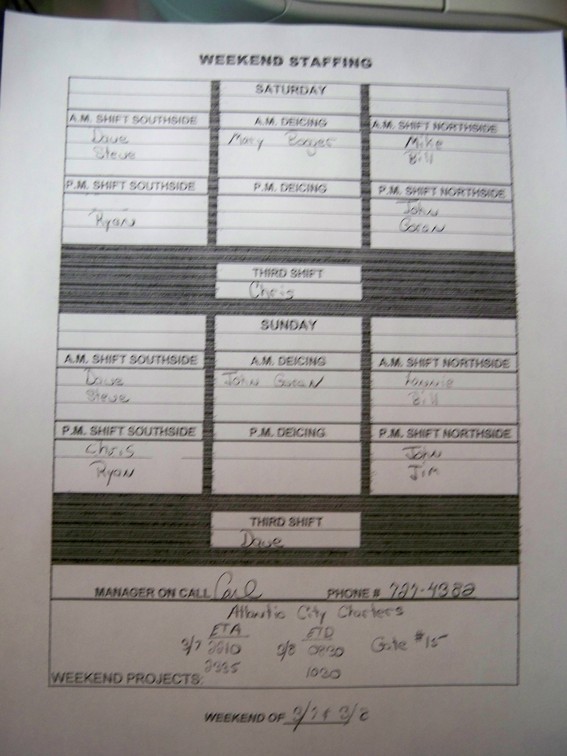 WEEKEND STAFFING
SATURDAY
A.M. SHIFT SOUTHSIDE A.M. DEICING A.M. SHIFT NORTHSIDE
Dave Mary Mike
Steve Bill
P.M. SHIFT SOUTHSIDE P.M. DEICING P.M. SHIFT NORTHSIDE
John
Ryan Goran
THIRD SHIFT
Chris
SUNDAY
A.M. SHIFT SOUTHSIDE A.M. DEICING A.M. SHIFT NORTHSIDE
Dave John Goran
Steve Bill
P.M. SHIFT SOUTHSIDE P.M. DEICING P.M. SHIFT NORTHSIDE
Chris John
Ryan Jim
THIRD SHIFT
Dave
MANAGER ON CALL Carl PHONE # 727-4382
Atlantic City Charters
ETA ETD
3/7 2210 3/8 0830 Gate #15
2335 1030
WEEKEND PROJECTS:
WEEKEND OF 3/7 & 3/8